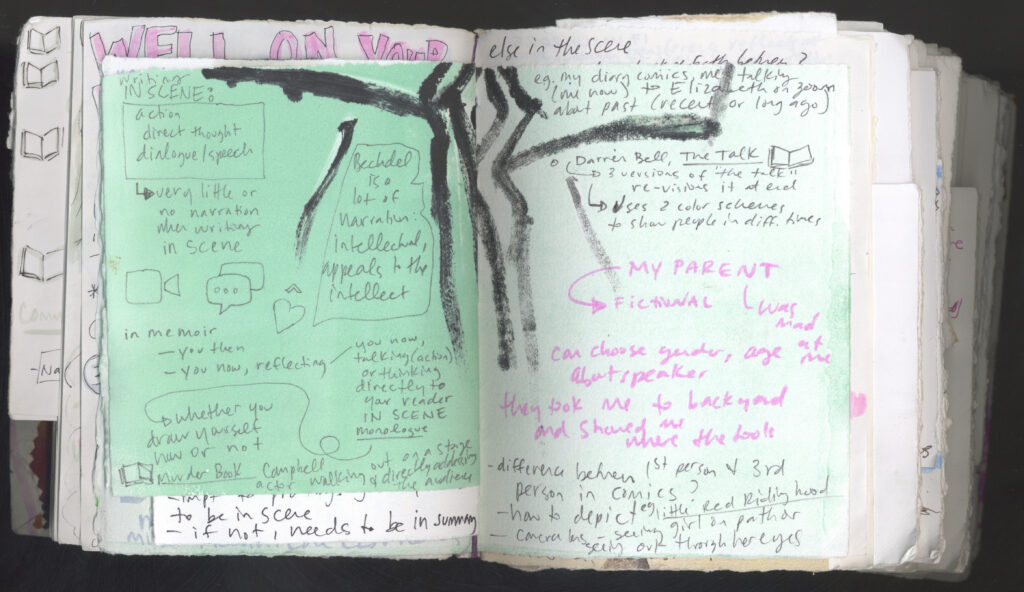 WELL ON YOUR
writing
IN SCENE:
action
direct thought
dialogue/speech
↳ very little or
no narration
when writing
in scene
Bechdel
is a
lot of
narration:
Intellectual,
appeals to the
intellect
in memoir
- you then
- you now, reflecting
you now,
talking (action)
or thinking
directly to
your reader
IN SCENE
monologue
↳ whether you
draw yourself
now or not
Murder Book Campbell
actor walking out on a stage
& directly addressing
the audience
to be in scene
- if not, needs to be in summary
else in the scene
eg. my diary comics, me talking
(me now) to Elizabeth on zoom
about past (recent or long ago)
o Darrin Bell, The Talk
↳ 3 versions of "the talk"
re-visions it at end
↳ Uses 2 color schemes
to show people in diff. times
MY PARENT
FICTIONAL
was
mad
at
me
can choose gender, age
about speaker
they took me to backyard
and showed me
where the tools
- difference between 1st person & 3rd
person in comics?
- how to depict eg little Red Riding hood
- camera lens - seeing girl on path or
seeing out through her eyes